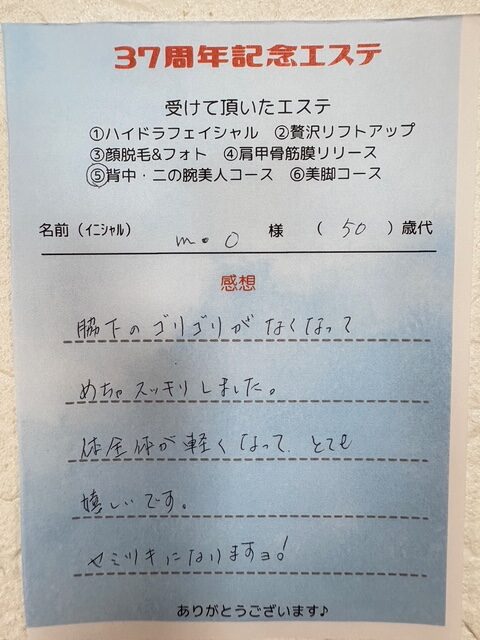 37周年記念エステ
受けて頂いたエステ
①ハイドラフェイシャル ②贅沢リフトアップ
③顔脱毛&フォト ④肩甲骨筋膜リリース
⑤背中・二の腕美人コース ⑥美脚コース
名前(イニシャル) m.O 様 (50)歳代
感想
脇下のゴリゴリがなくなって
めちゃスッキリしました。
体全体が軽くなって、とても
嬉しいです。
ヤミツキになりますョ!
ありがとうございます♪